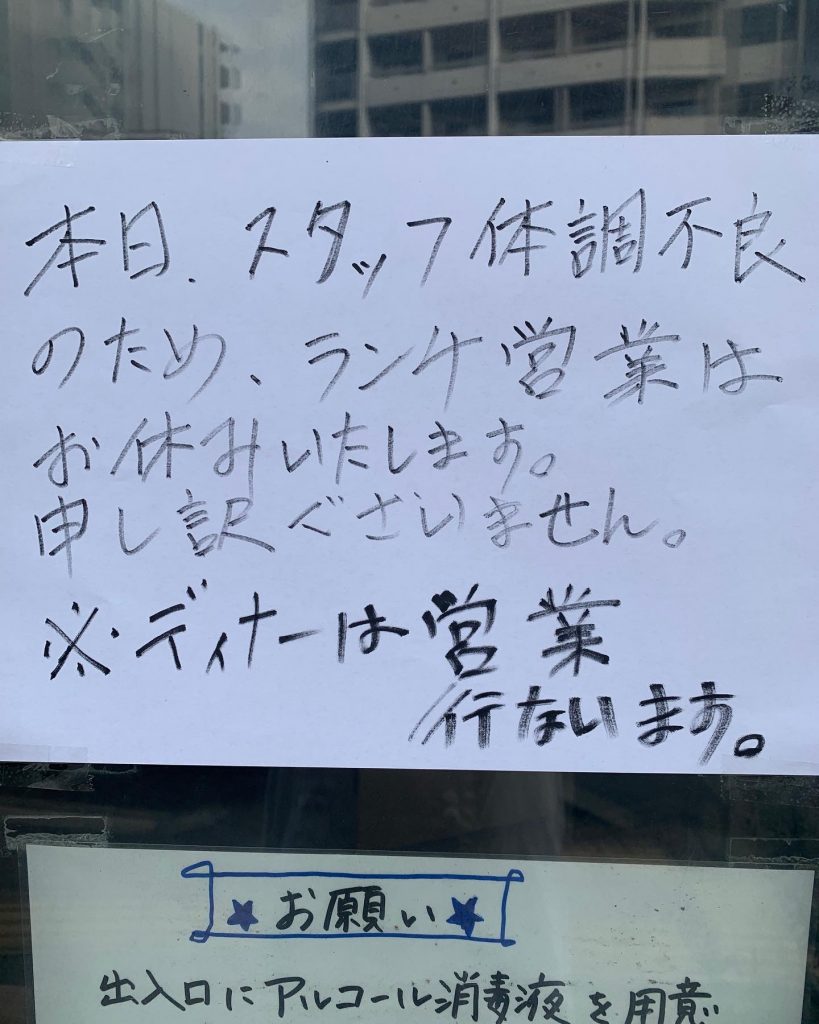 本日、スタッフ体調不良
のため、ランチ営業は
お休みいたします。
申し訳ございません。
※・ディナーは営業
行ないます。
★お願い★
出入口にアルコール消毒液を用意